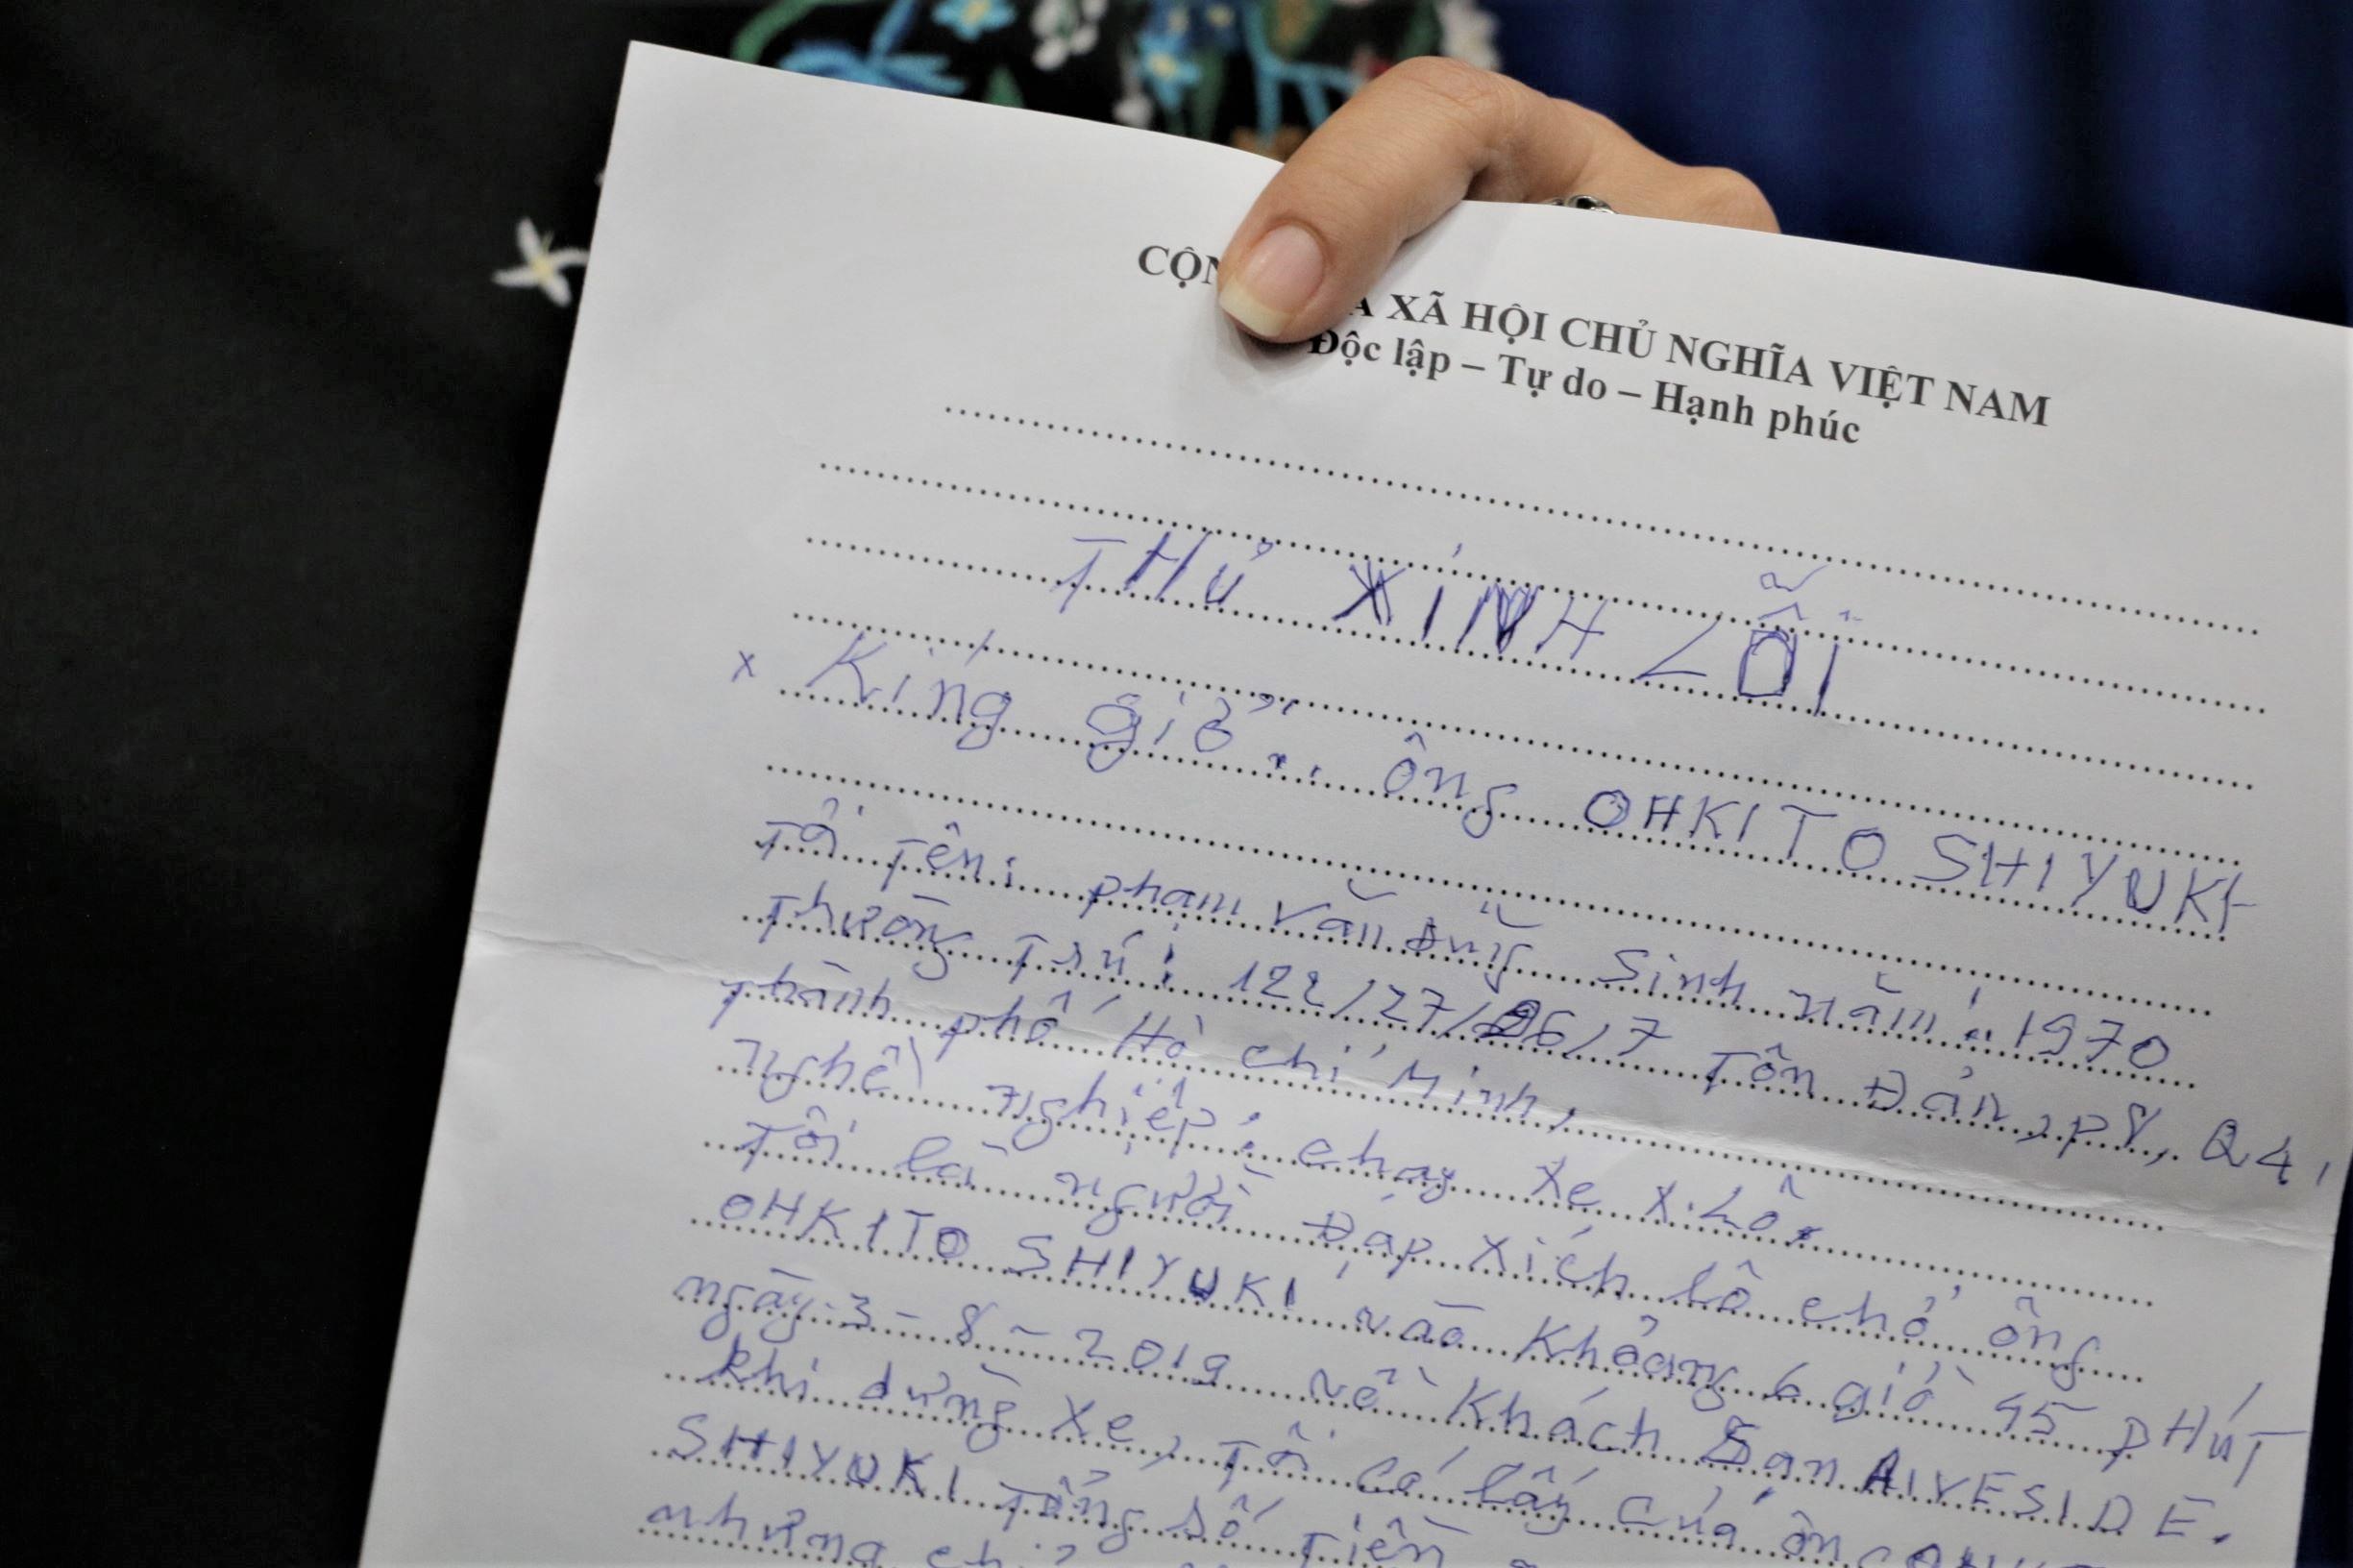 CỘN A XÃ HỘI CHỦ NGHĨA VIỆT NAM
Độc lập – Tự do – Hạnh phúc
THƯ XINH LỖI
x Kíng giử: ông OHKITO SHIYUKI
Tôi Tên: phạm văn Dũng Sinh năm: 1970
Thường Trú: 122/27/26/7 Tôn Đản, p8, Q4,
Thành phố Hồ chí Minh,
nghề nghiệp: chạy xe x.Lô.
Tôi là người Đạp xích lô chở ông
OHKITO SHIYUKI vào Khoảng 6 giờ 45 PHÚT
ngày 3-8-2019 về Khách Sạn RIVESIDE.
khi dừng xe, Tôi có lấy của ông
SHIYUKI Tổng số Tiền
nhưng